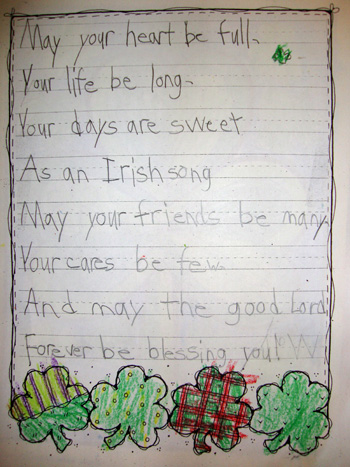 May your heart be full,
Your life be long,
Your days are sweet
As an Irish song
May your friends be many,
Your cares be few.
And may the good Lord
Forever be blessing you!